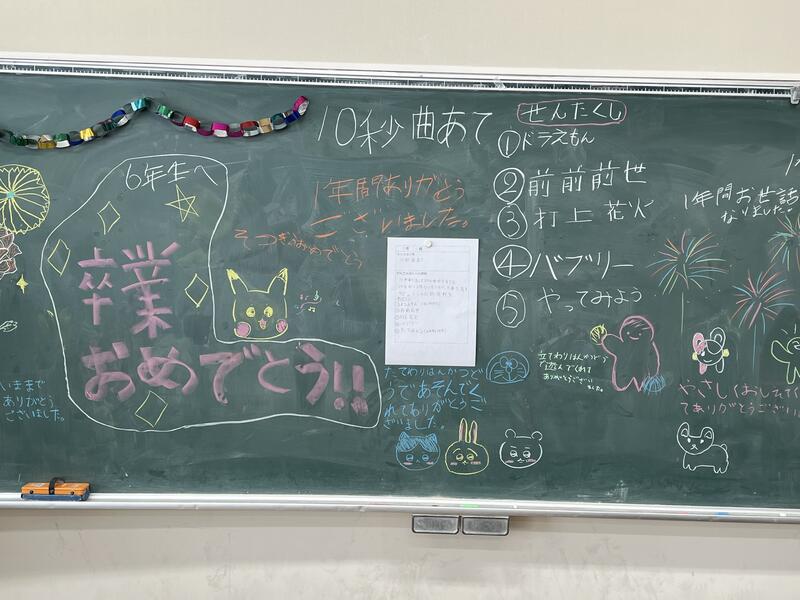 6年生へ
卒業
おめでとう!!
いままで
ありがとう
ございました。
1年間ありがとう
ございました。
そつぎょうおめでとう
10秒曲あて
せんたくし
①ドラえもん
②前前前世
③打上花火
④パプリー
⑤やってみよう
たてわりはんかつど
うであそんでく
れてありがとうご
ざいました。
立てわりはんかつどう
で遊んでくれて
ありがとうござい
ました。
1年間お世話に
なりました。
やさしくおしえてく
てありがとうござい